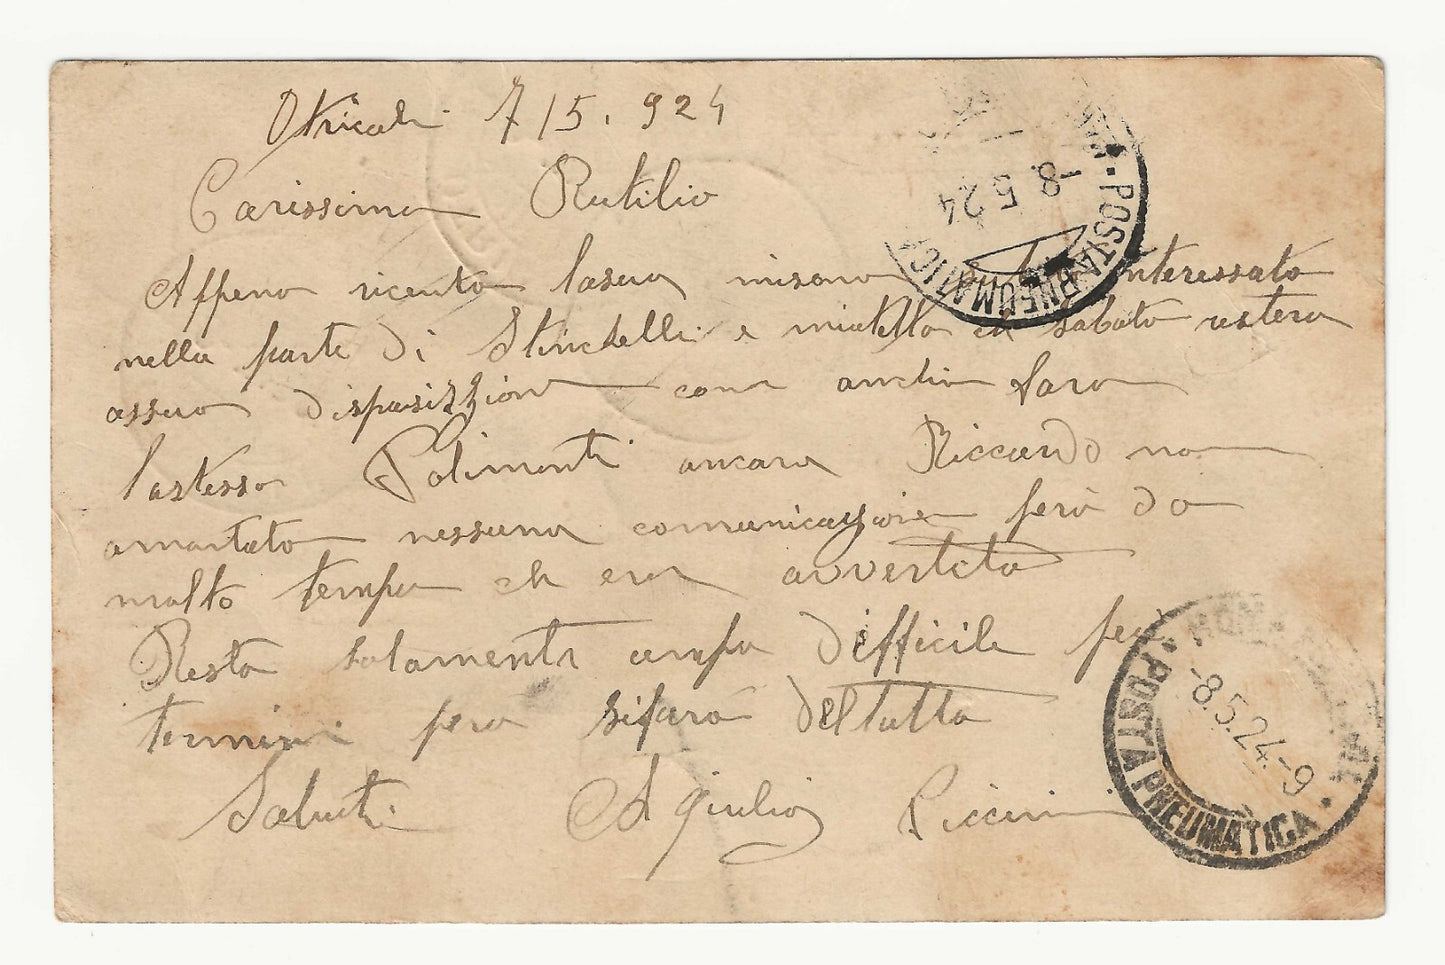 Otricoli 7/5.924
Carissimo Rutilio
Appeno ricento lasua misono interessato
nella parte di Stinchelli e miadetto ch sabato restera
assua disposizzione come anchio Saro
lostesso Polimanti ancora Riccardo no
amartato nessuna comunicazzione però da
molto tempo ch era avvertito
Resta solamente difficile per
termini pero sifara deltutto
Saluti Agiulio Piccini
-8.5.24
POSTA PNEUMATICA
ROMA
-8.5.24.-9
POSTA PNEUMATICA